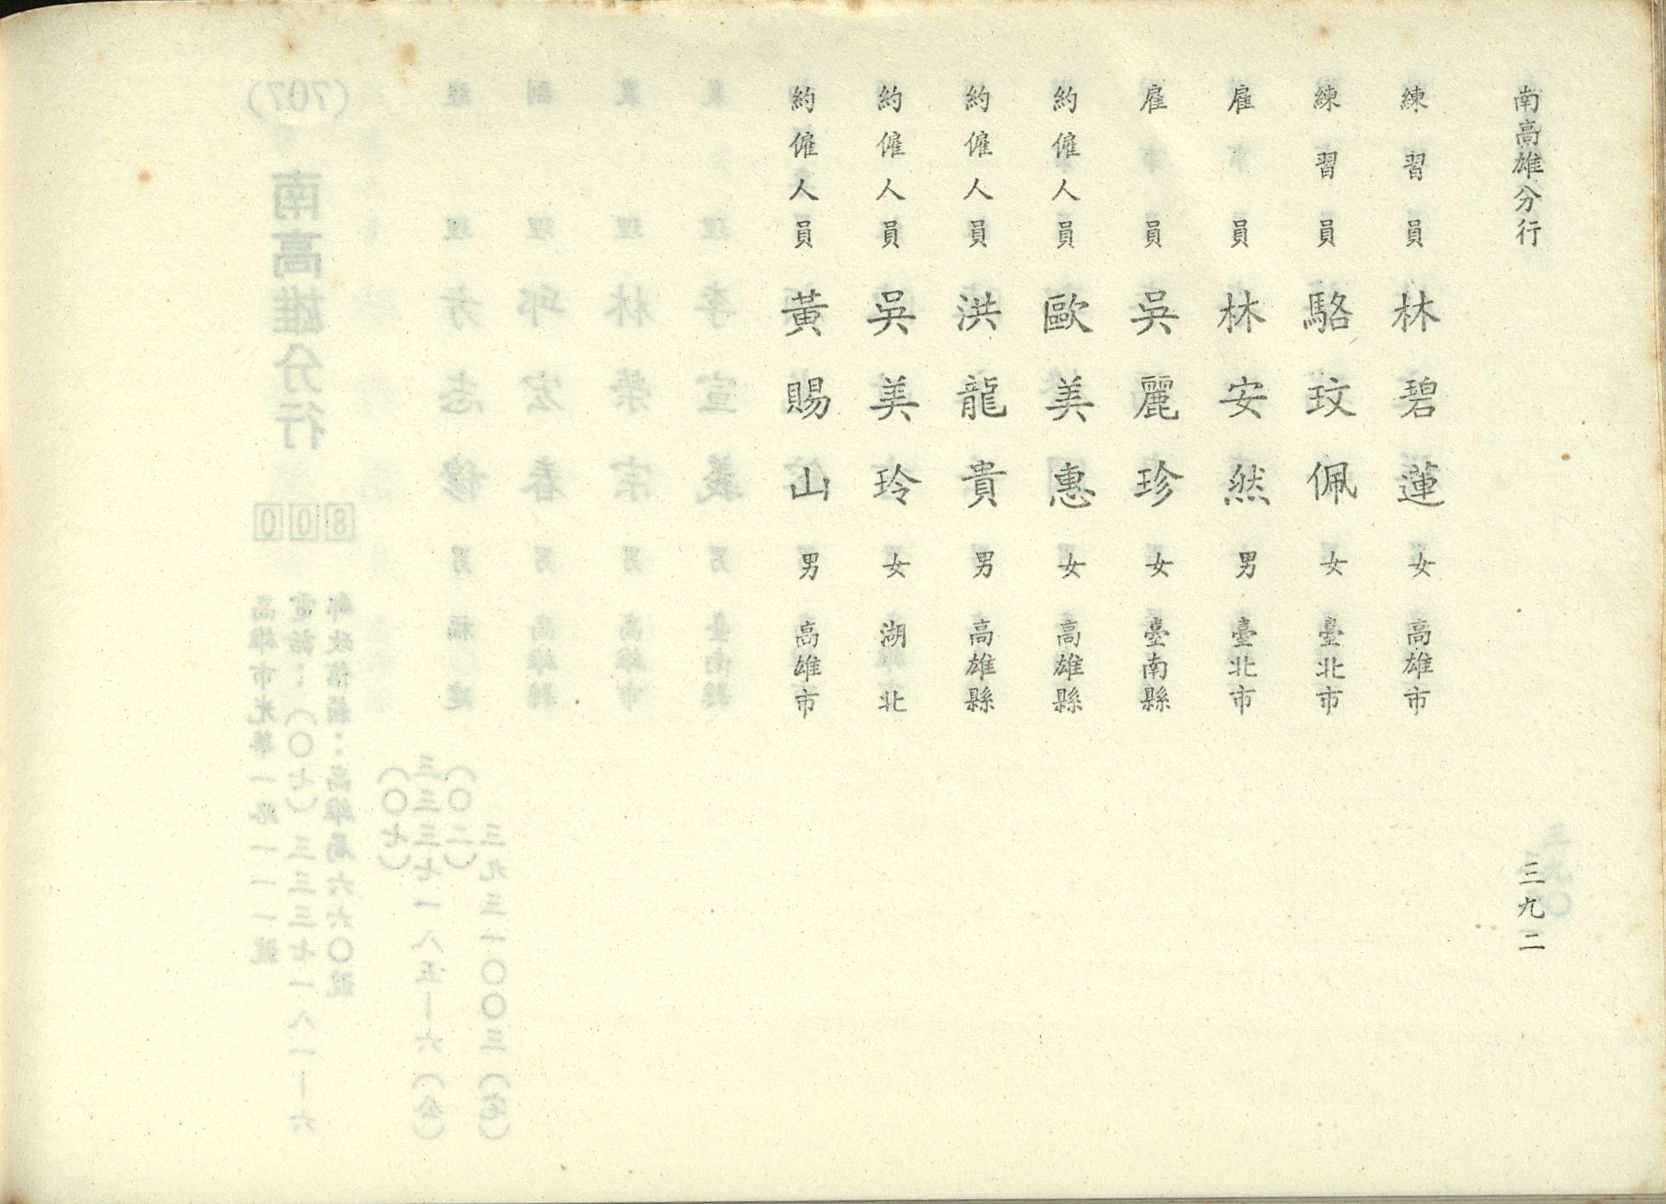 南高雄分行
三九二
練習員 林碧蓮 女 高雄市
練習員 駱玟佩 女 臺北市
雇員 林安然 男 臺北市
雇員 吳麗珍 女 臺南縣
約僱人員 歐美惠 女 高雄縣
約僱人員 洪龍貴 男 高雄縣
約僱人員 吳美玲 女 湖北
約僱人員 黃賜山 男 高雄市